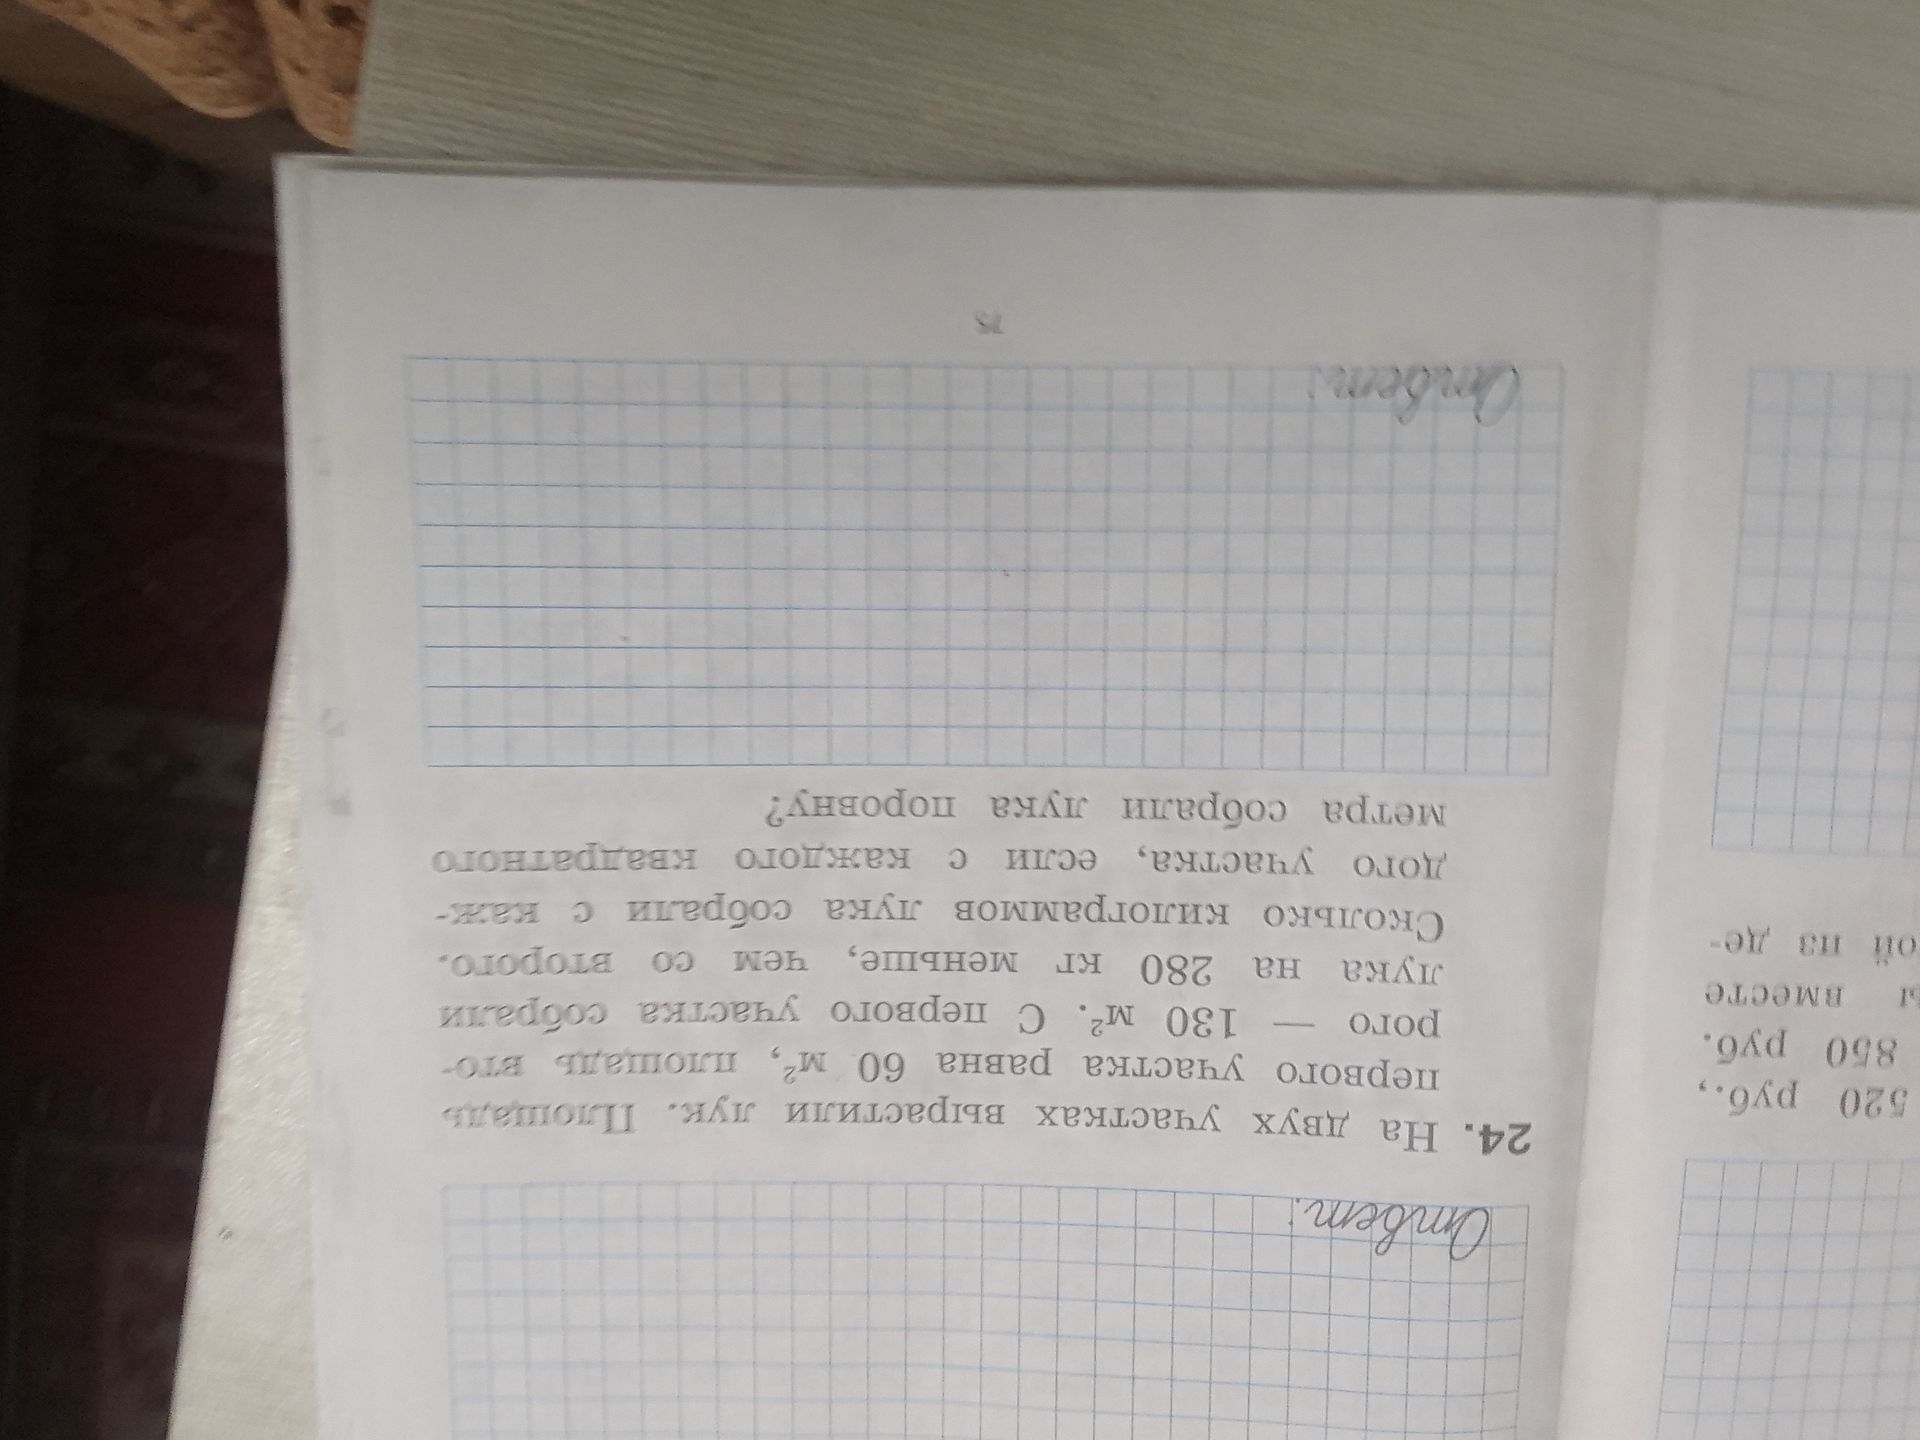 Ответ:
24. На двух участках вырастили лук. Площадь
первого участка равна 60 м², площадь вто-
рого — 130 м². С первого участка собрали
лука на 280 кг меньше, чем со второго.
Сколько килограммов лука собрали с каж-
дого участка, если с каждого квадратного
метра собрали лука поровну?
Ответ:
75
520 руб.,
850 руб.
вместе
из де-